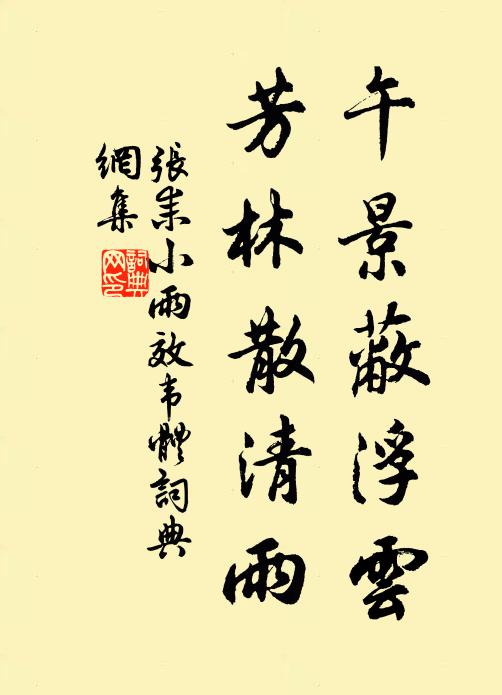 午景蔽浮雲
芳林散清雨
張耒小雨效韦體詞典
網集
詞典
网印